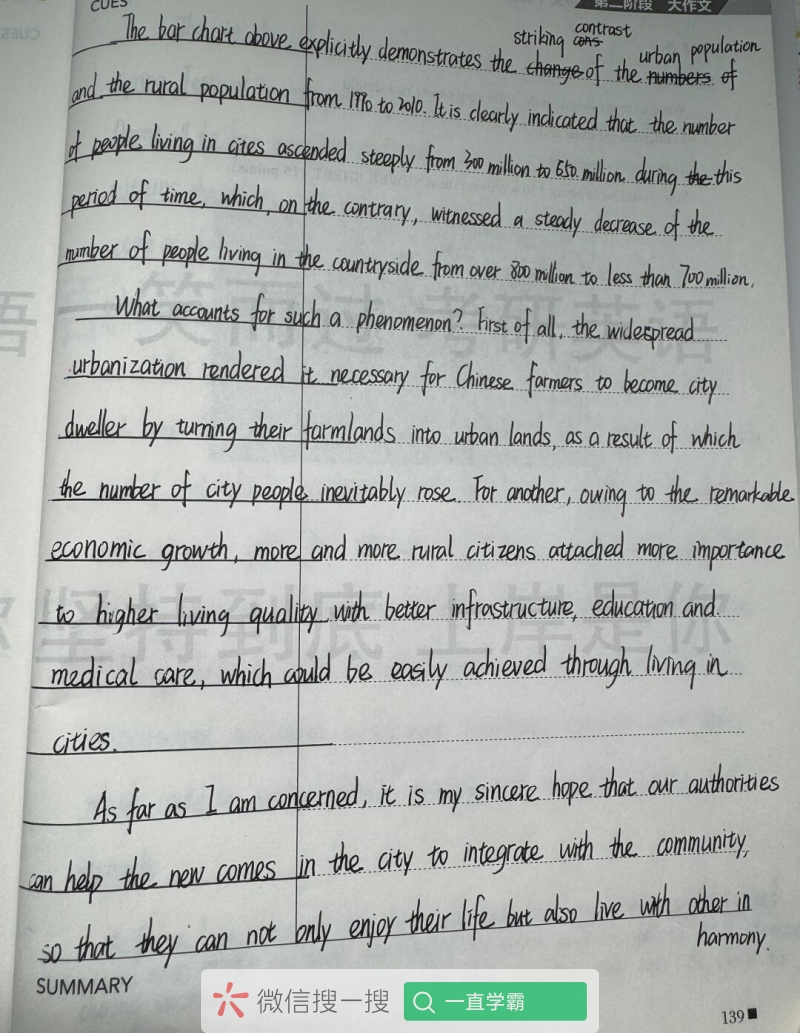 CUES
第二阶段 大作文
The bar chart above explicitly demonstrates the striking contrast of the urban population
and the rural population from 1990 to 2010. It is clearly indicated that the number
of people living in cites ascended steeply from 300 million to 650 million during this
period of time, which, on the contrary, witnessed a steady decrease of the
number of people living in the countryside from over 800 million to less than 700 million.
What accounts for such a phenomenon? First of all, the widespread
urbanization rendered it necessary for Chinese farmers to become city
dweller by turning their farmlands into urban lands, as a result of which
the number of city people inevitably rose. For another, owing to the remarkable
economic growth, more and more rural citizens attached more importance
to higher living quality with better infrastructure, education and
medical care, which could be easily achieved through living in
cities.
As far as I am concerned, it is my sincere hope that our authorities
can help the new comes in the city to integrate with the community,
so that they can not only enjoy their life but also live with other in
harmony.
SUMMARY
微信搜一搜 一直学霸
139